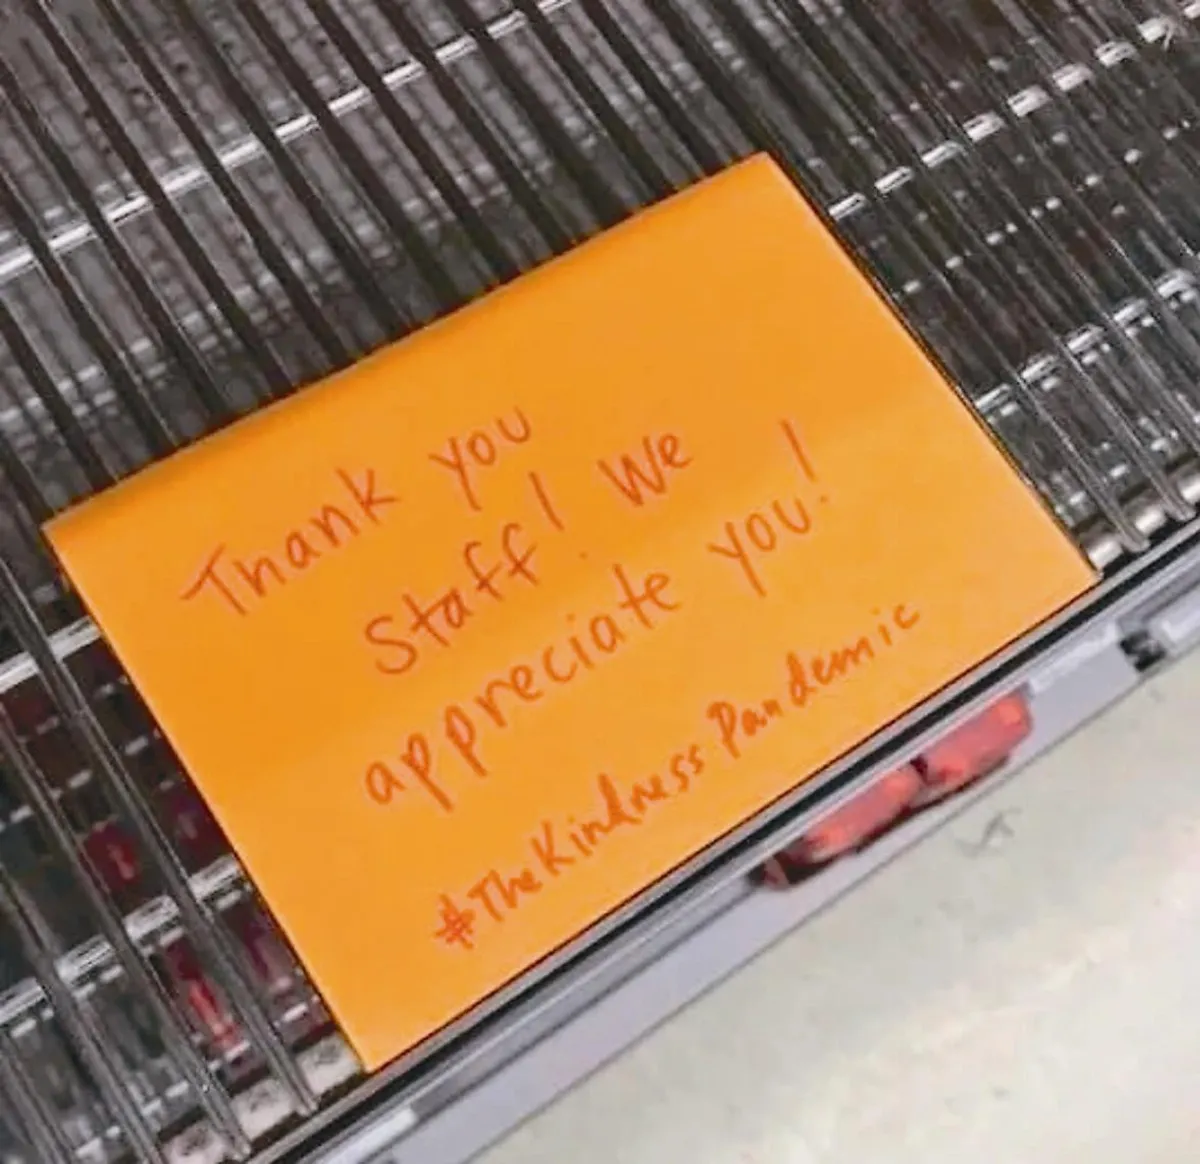 Thank you
Staff! We
appreciate you!
#TheKindness Pandemic